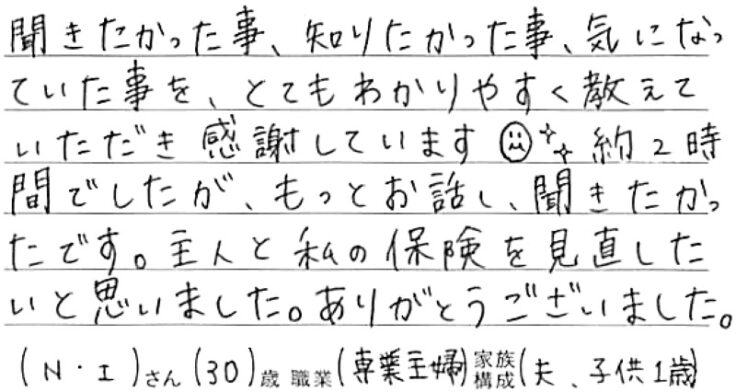 聞きたかった事、知りたかった事、気になっ
ていた事を、とてもわかりやすく教えて
いただき感謝しています 約2時
間でしたが、もっとお話し、聞きたかっ
たです。主人と私の保険を見直した
いと思いました。ありがとうございました。
(N・I)さん(30)歳 職業(専業主婦)家族構成(夫、子供1歳)